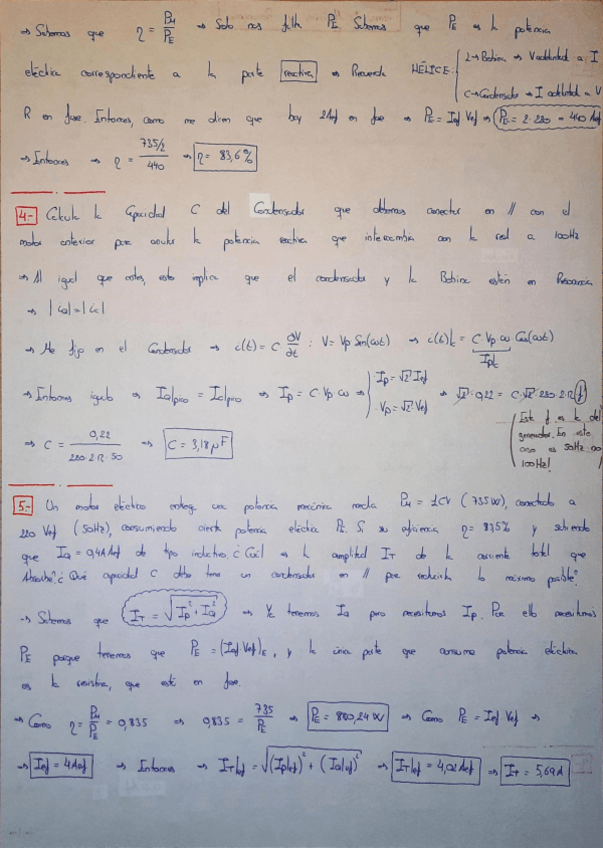 → Sabemos que η = P_M/P_E → Solo nos falta P_E. Sabemos que P_E es la potencia
eléctrica correspondiente a la parte reactiva → Recuerda HÉLICE: { L→ Bobina → V adelantad a I
C→ Condensador → I adelantad a V
R en fase. Entonces, como me dicen que hay 2Aef en fase → P_E = Ief Vef → P_E = 2·220 = 440
→ Entonces → η = 735/2 / 440 → η = 83,6%
4.- Calcula la Capacidad C del Condensador que debemos conectar en // con el
motor anterior para anular la potencia reactiva que intercambia con la red a 100Hz
→ Al igual que antes, esto implica que el condensador y la Bobina estén en Resonancia
→ |
→ Me fijo en el Condensador → i(t) = C dV/dt : V = Vp Sen(ωt) → i(t)|c = C Vp ω Cos(ωt)
→ Entonces igualo → → Ip = C Vp ω → { Ip = √2 Ief → √2·0,22 = C √2·220·2π f
Vp = √2 Vef
Este f es la del
generador. En este
caso es 50Hz no
100Hz!
→ C = 0,22 / 220·2π·50 → C = 3,18 μF
5.- Un motor eléctrico entrega una potencia mecánica media P_M = 1CV (735W), conectado a
220 Vef (50Hz), consumiendo cierta potencia eléctrica P_E. Si su eficiencia η = 83,5% y sabiendo
que I_Q = 0,4Aef de tipo inductivo, ¿Cuál es la amplitud I_T de la corriente total que
absorbe? ¿Qué capacidad C debe tener un condensador en // para reducirla lo máximo posible?
→ Sabemos que I_T = √(Ip² + I_Q²) → Ya tenemos I_Q pero necesitamos Ip. Por ello necesitamos
P_E porque tenemos que P_E = (Ief Vef)_E, y la única parte que consume potencia eléctrica
es la resistiva, que está en fase.
→ Como η = P_M/P_E = 0,835 → 0,835 = 735/P_E → P_E = 880,24W → Como P_E = Ief Vef →
→ Ief = 4Aef → Entonces → I_T|ef = √((Ip|ef)² + (I_Q|ef)²) → I_T|ef = 4,02Aef → I_T = 5,69A